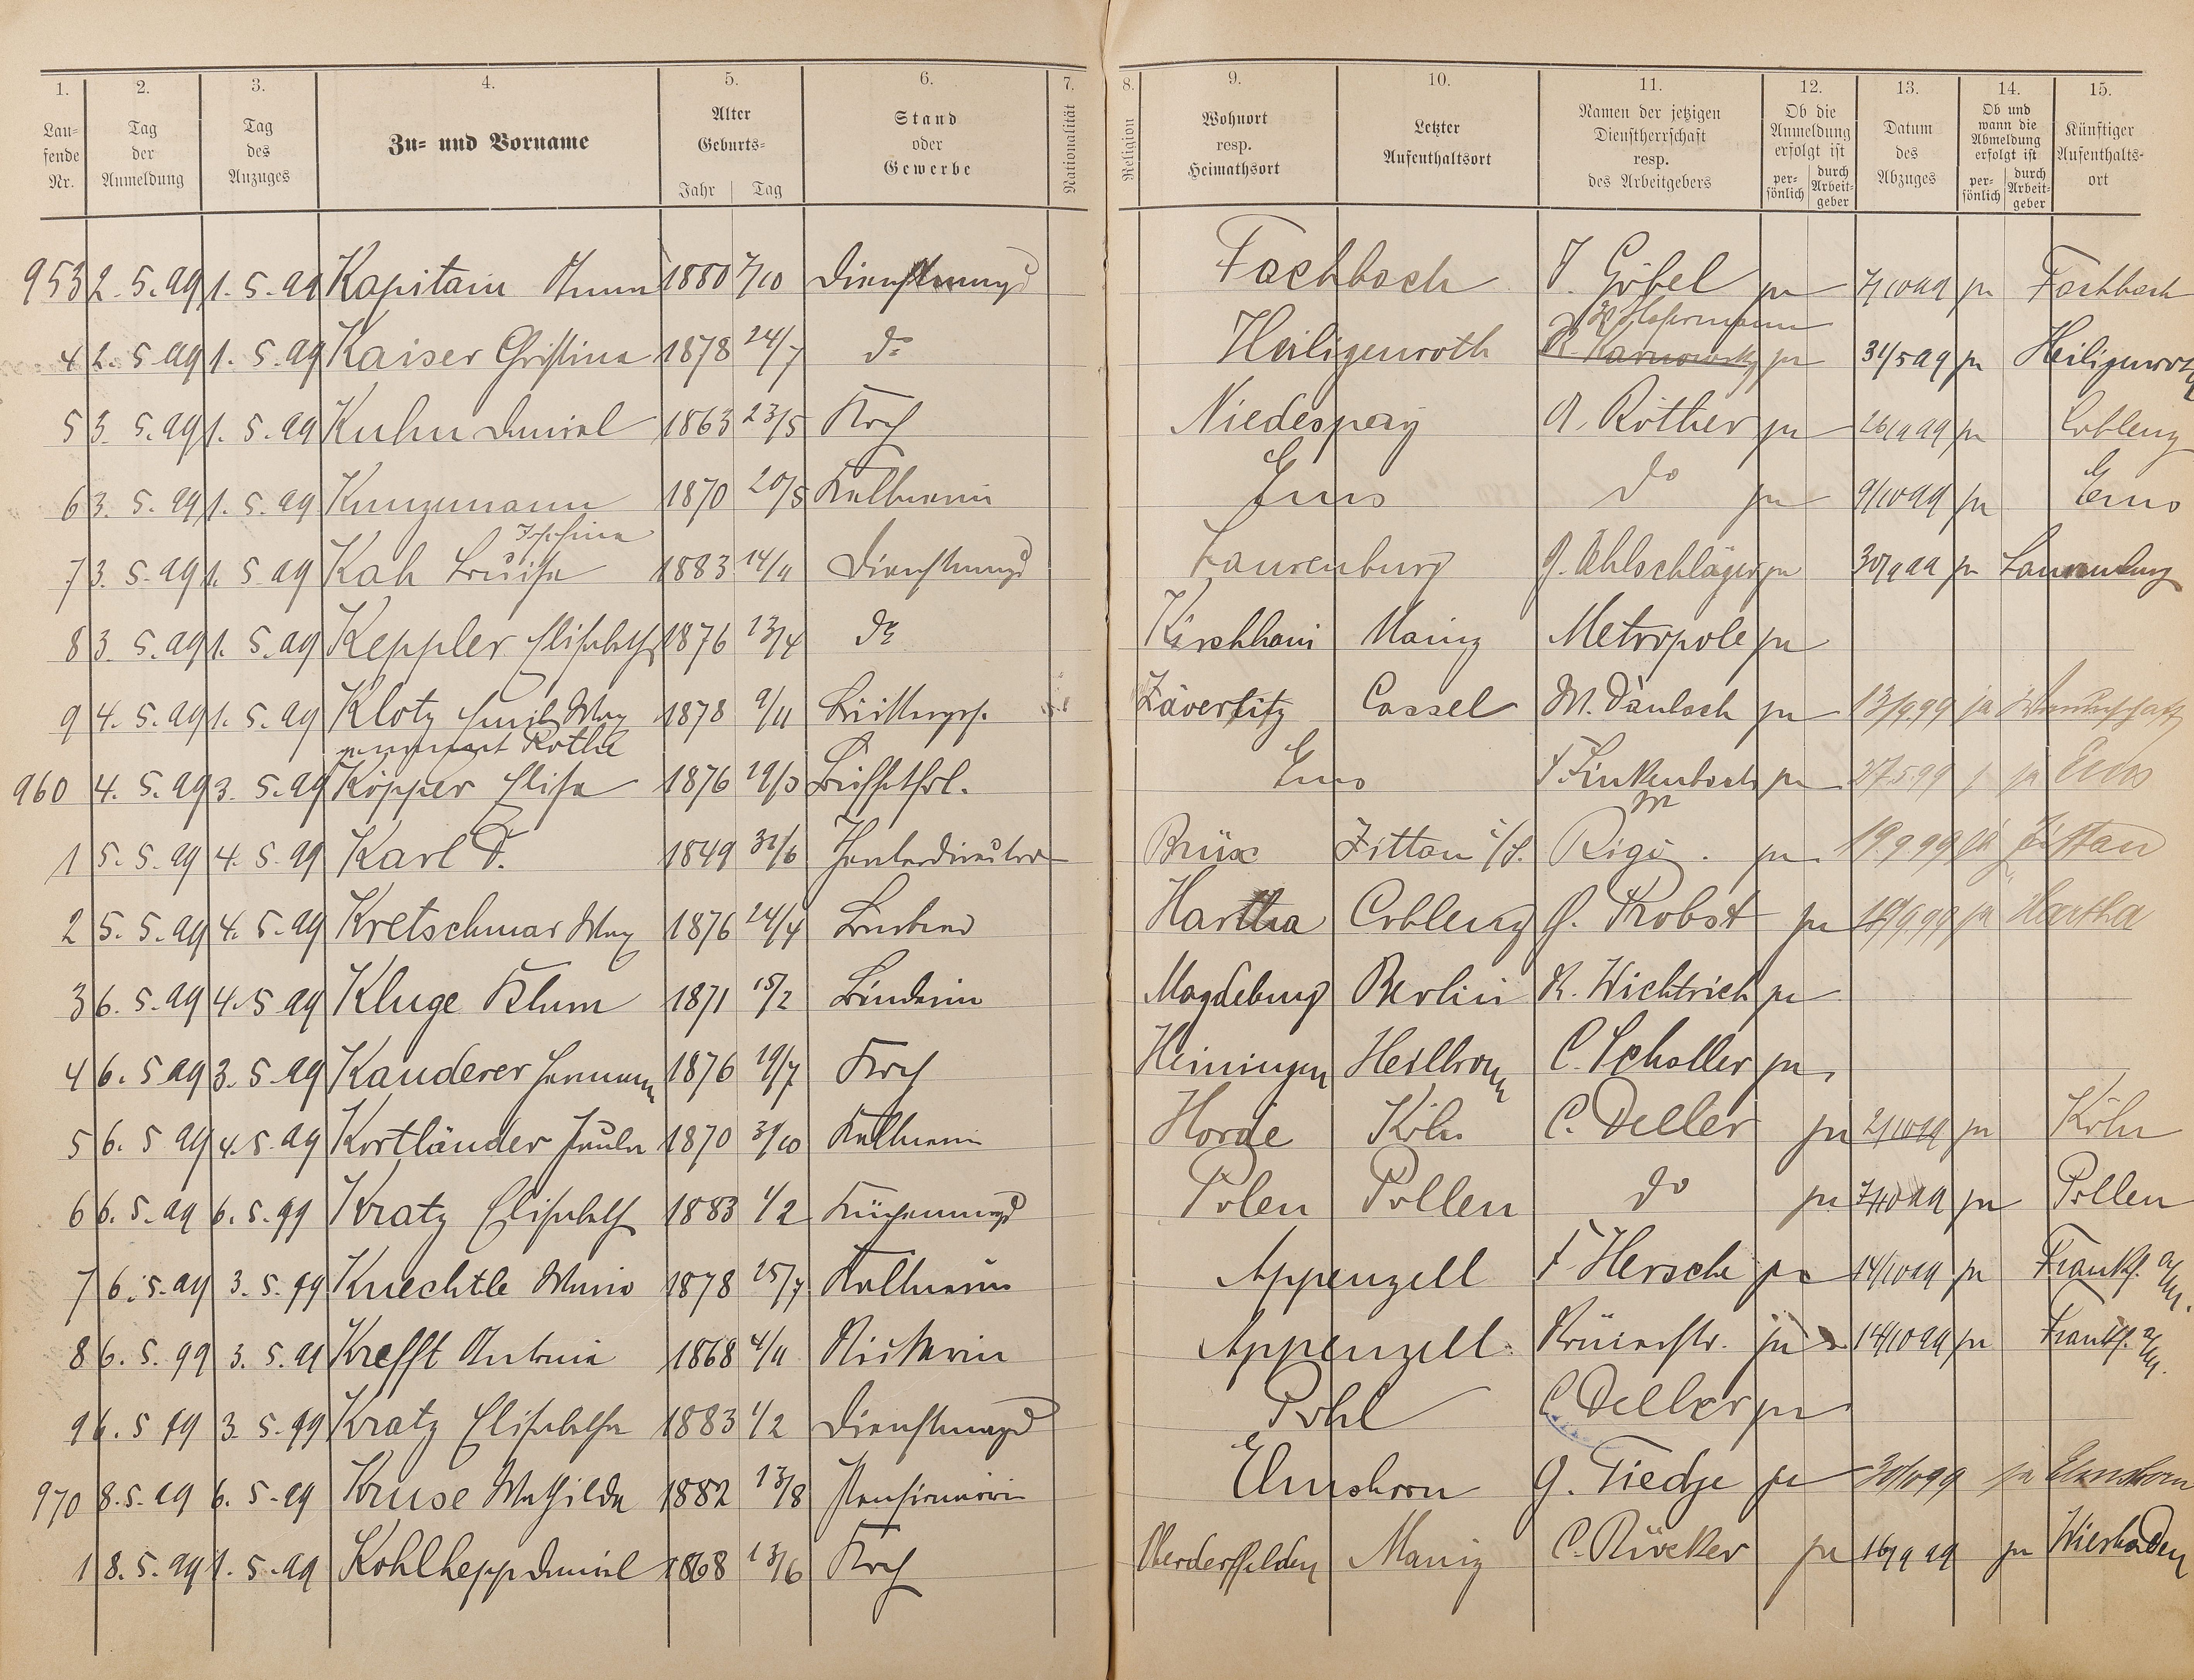 1. 2. 3. 4. 5. 6. 7. 8. 9. 10. 11. 12. 13. 14. 15.
Lau=fende Nr. Tag der Anmeldung Tag des Anzuges Zu= und Vorname Alter Geburts= Jahr Tag Stand oder Gewerbe Nationalität Religion Wohnort resp. Heimathsort Letzter Aufenthaltsort Namen der jetzigen Dienstherrschaft resp. des Arbeitgebers Ob die Anmeldung erfolgt ist per=sönlich durch Arbeit=geber Datum des Abzuges Ob und wann die Abmeldung erfolgt ist per=sönlich durch Arbeit=geber Künftiger Aufenthalts=ort
953 2. 5. 99 1. 5. 99 Kapitain Anna 1880 7/10 Dienstmagd Fachbach J. Göbel ja 7/10 99 ja Fachbach
W. Hasermann
4 2. 5 99 1. 5. 99 Kaiser Christina 1878 24/7 do Heiligenroth ja 31/5 99 ja Heiligenroth
5 3. 5. 99 1. 5. 99 Kuhn Daniel 1863 23/5 Koch Niederspay A. Röther ja 26/9 99 ja Coblenz
6 3. 5. 99 1. 5. 99 Kunzmann 1870 20/5 Kellnerin Ems do ja 9/10 99 ja Ems
Josefina
7 3. 5. 99 1. 5 99 Kah Louise 1883 14/11 Dienstmagd Laurenburg J. Ohlschläger ja 30/9 99 ja Laurenburg
8 3. 5. 99 1. 5. 99 Keppler Elisabeth 1876 13/4 do Kirchhain Mainz Metropole ja
9 4. 5. 99 1. 5. 99 Klotz Emil Max 1878 9/11 Cassel M. Däubach ja 13/9.99 ja
genannt Rothe
960 4. 5. 99 3. 5. 99 Köpper Elise 1876 19/3 Büffetfrl. Ems F. Finkenbach ja 27.5.99 ja Ems
1 5. 5. 99 4. 5. 99 Karl F. 1849 Theaterdirector Brüx Zittau i/S. Rigi ja 19.9.99 ja Zittau
2 5. 5. 99 4. 5. 99 Kretschmar Max 1876 24/4 Barbier Hartha Coblenz J. Probst ja 19/9.99 ja Hartha
3 6. 5. 99 4. 5 99 Kluge Klara 1871 15/2 Binderin Magdeburg Berlin R. Wichtrich ja
4 6. 5 99 3. 5. 99 Kauderer Hermann 1876 19/7 Koch Heiningen Heilbronn C. Scholler ja
5 6. 5 99 4. 5. 99 Kortländer Paula 1870 Kellnerin Horde Köln C. Deller ja 2/10 99 ja Köln
6 6. 5. 99 6. 5. 99 Kratz Elisabeth 1883 1/2 Küchenmagd Polen Pollen do ja 7/10 99 ja Pollen
7 6. 5. 99 3. 5. 99 Knechtle Maria 1878 25/7 Kellnerin Appenzell F Hersche ja 14/10 99 ja Frankf. a/M.
8 6. 5. 99 3. 5. 99 Krefft Antonie 1868 4/11 Stickerin Appenzell Römerstr. ja 14/10 99 ja Frankf. a/M.
9 6. 5 99 3. 5. 99 Kratz Elisabetha 1883 1/2 Dienstmagd Pohl C Deller ja
970 8. 5. 99 6. 5. 99 Kruse Mathilde 1882 13/8 Pensionärin Elmshorn G. Tiedje ja 30/9 99 ja Elmshorn
1 8. 5. 99 1. 5. 99 Kohlhepp Daniel 1868 13/6 Koch Oberdorffelden Mainz C. Röcker ja 16/9 99 ja Wiesbaden